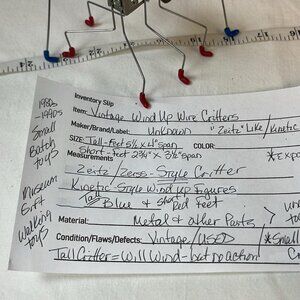 Inventory Slip
Item: Vintage Wind Up Wire Critters
Maker/Brand/Label: Unknown "Zeitz" Like/Kinetic
SIZE: Tall-Feet 5½ x 4" span COLOR:
Short-feet 2¾" x 3½" span
Measurements
Zeitz/Zero-Style Critter
Kinetic-Style Wind up figures
Tall Blue & Short Red feet
Material: Metal & other Parts
Condition/Flaws/Defects: Vintage/USED *Small
Tall Critter = Will Wind - but no action
1980s
-1990s
Small
Batch
toys
Museum
Gift
Walking
toys